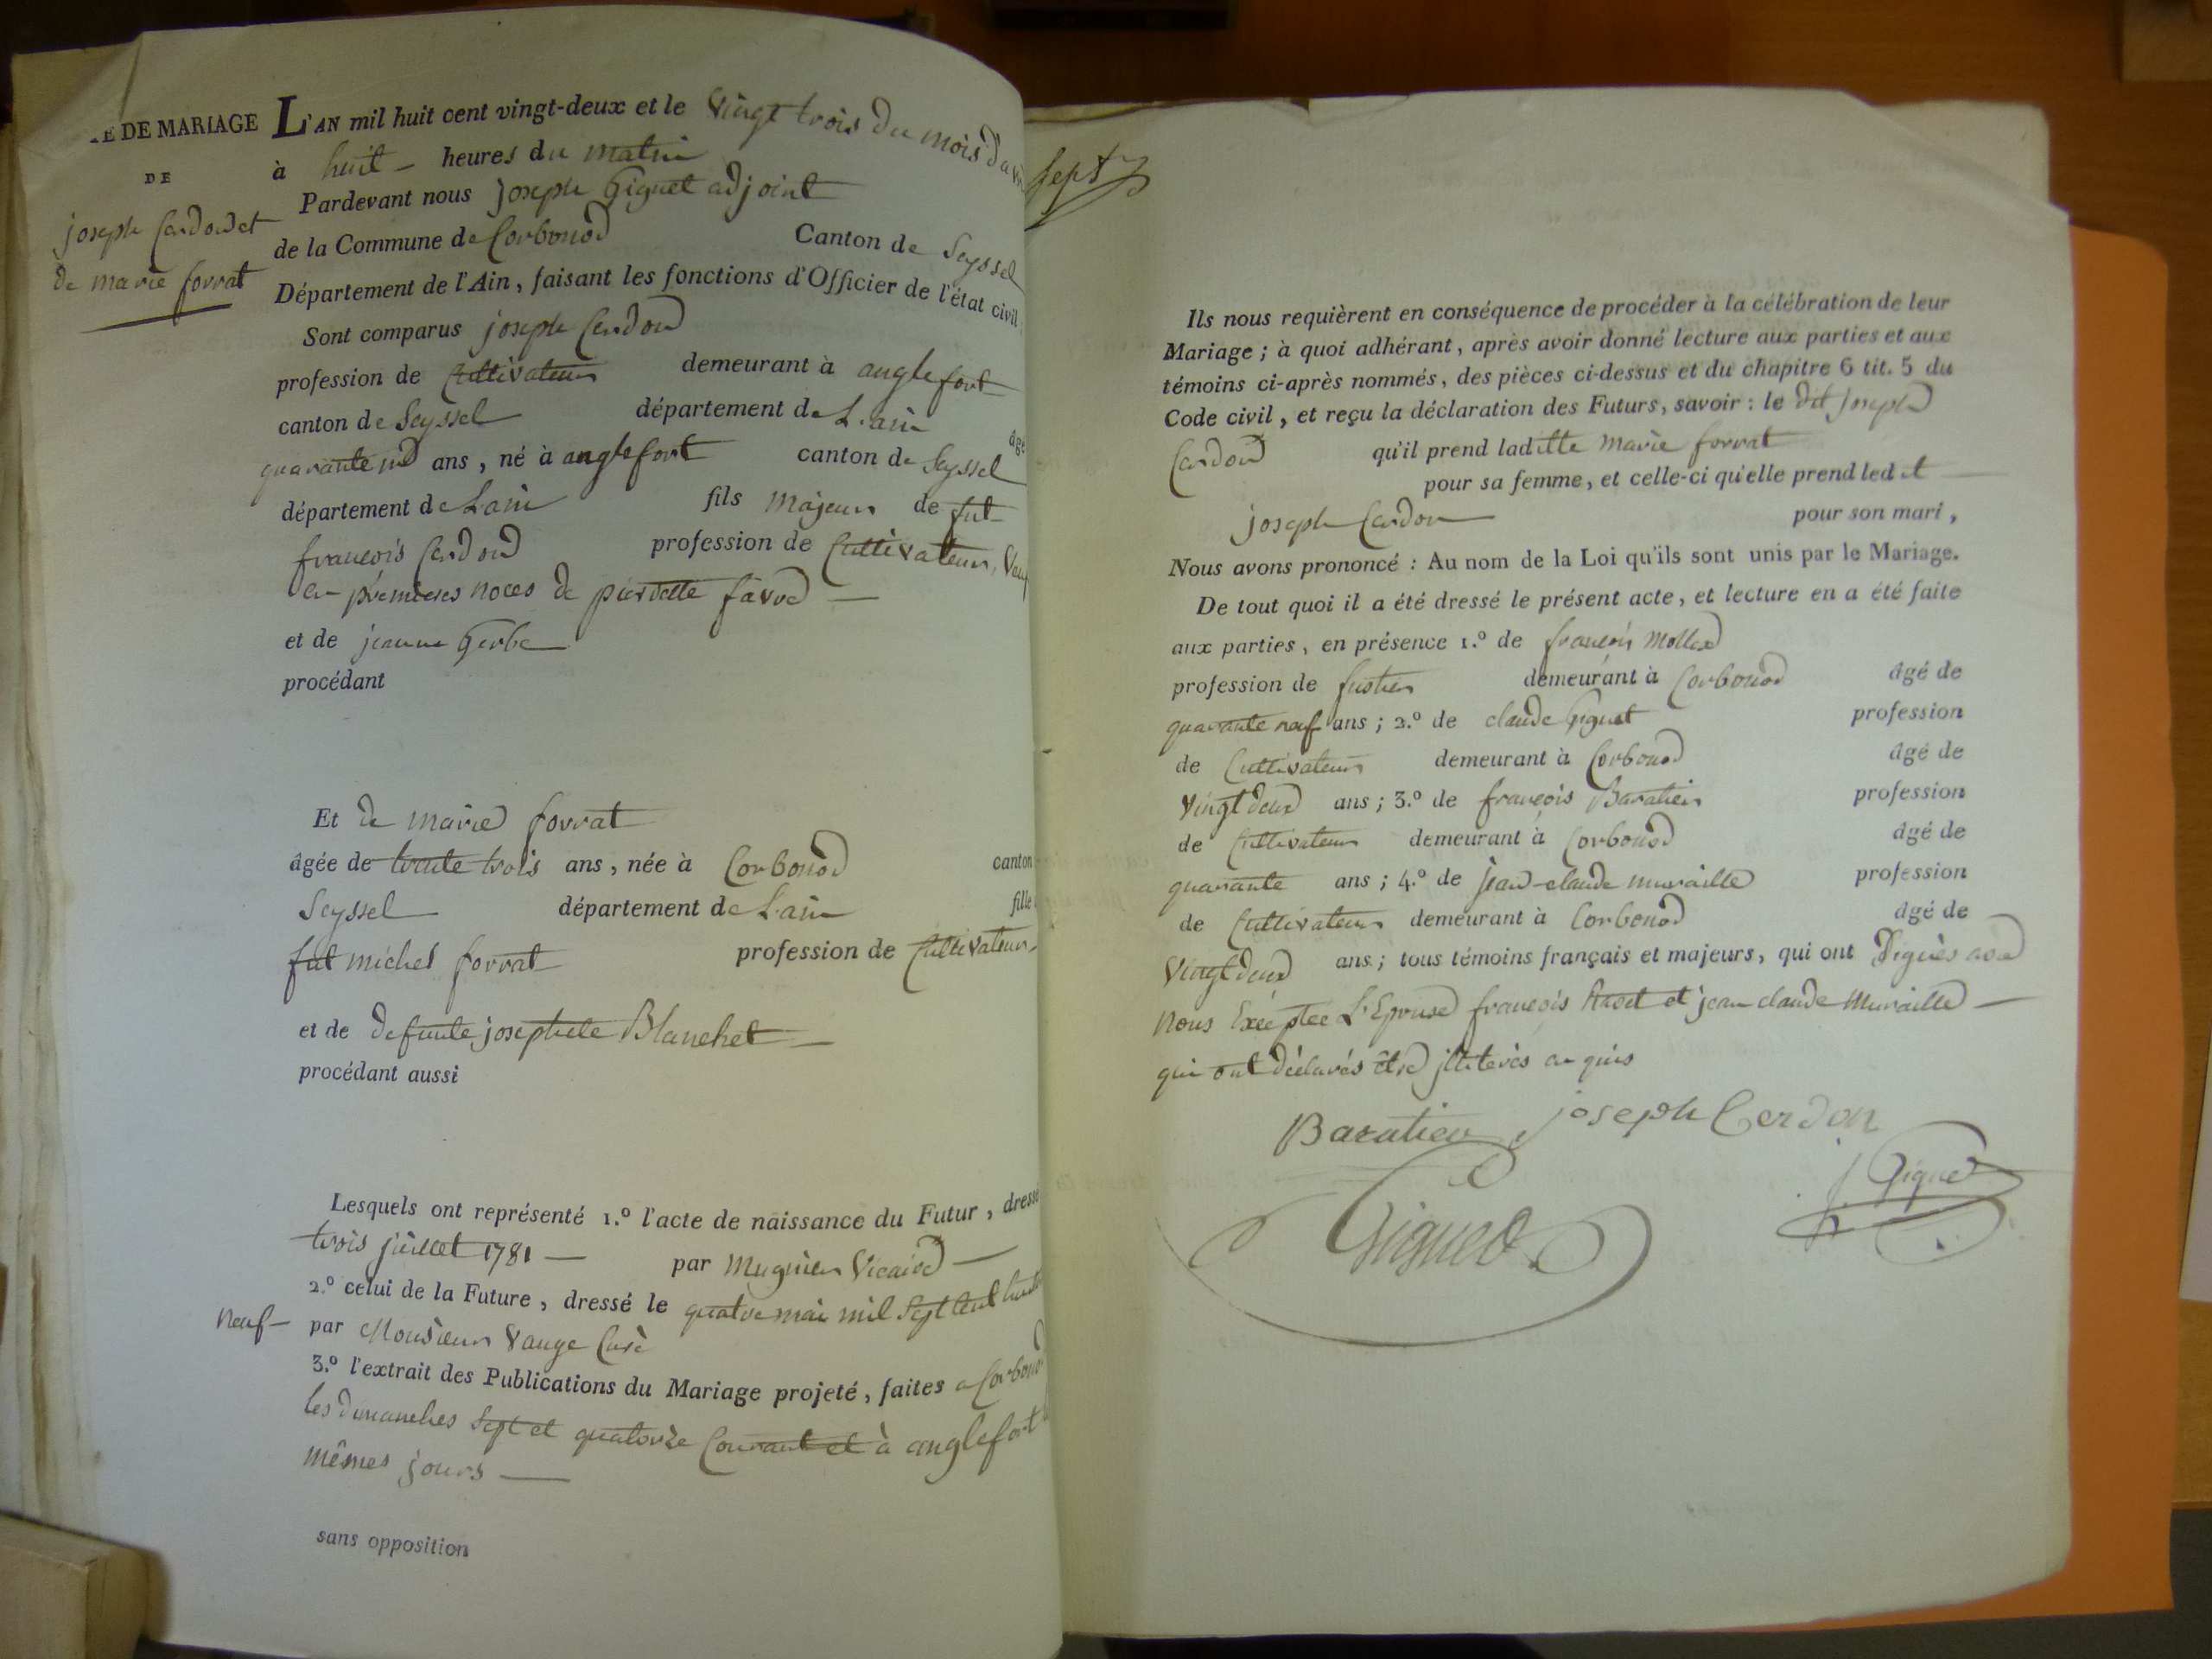 E DE MARIAGE
DE
joseph Cerdon et
de marie forrat
L'AN mil huit cent vingt-deux et le Vingt trois du mois d'av
à huit heures du matin
Pardevant nous joseph Giguet adjoint
de la Commune de Corbonod Canton de Seyssel
Département de l'Ain, faisant les fonctions d'Officier de l'état civil.
Sont comparus joseph Cerdon
profession de Cultivateur demeurant à anglefort
canton de Seyssel département de L'ain âgé
quarante un ans, né à anglefort canton de Seyssel
département de L'ain fils majeur de fut
francois Cerdon profession de Cultivateur, Veuf
en premieres noces de pierrette favre
et de jeanne Gerbe
procédant
Et de marie forrat
âgée de trente trois ans, née à Corbonod canton
Seyssel département de L'ain fille
fut michel forrat profession de Cultivateur
et de defunte josephete Blanchet
procédant aussi
Lesquels ont représenté 1.º l'acte de naissance du Futur, dressé
trois juillet 1781 par Mugnier Vicaire
2.º celui de la Future, dressé le quatre mai mil Sept Cent huit
neuf par Monsieur Vauge Curé
3.º l'extrait des Publications du Mariage projeté, faites a Corbonod
les dimanches Sept et quatorze Courant et à anglefort
mêmes jours
sans opposition
Sept
Ils nous requièrent en conséquence de procéder à la célébration de leur
Mariage; à quoi adhérant, après avoir donné lecture aux parties et aux
témoins ci-après nommés, des pièces ci-dessus et du chapitre 6 tit. 5 du
Code civil, et reçu la déclaration des Futurs, savoir: le dit joseph
Cerdon qu'il prend laditte marie forrat
pour sa femme, et celle-ci qu'elle prend ledit
joseph Cerdon pour son mari,
Nous avons prononcé: Au nom de la Loi qu'ils sont unis par le Mariage.
De tout quoi il a été dressé le présent acte, et lecture en a été faite
aux parties, en présence 1.º de francois Mollex
profession de fustier demeurant à Corbonod âgé de
quarante neuf ans; 2.º de claude Giguet profession
de Cultivateur demeurant à Corbonod âgé de
Vingt deux ans; 3.º de francois Baratier profession
de Cultivateur demeurant à Corbonod âgé de
quarante ans; 4.º de jean-claude muraille profession
de Cultivateur demeurant à Corbonod âgé de
Vingt deux ans; tous témoins français et majeurs, qui ont Signés avec
nous Exéptée L'Epouse francois et jean claude Muraille
qui ont déclarés être jlliterés
Baratier joseph Cerdon
Giguet
J. Giguet